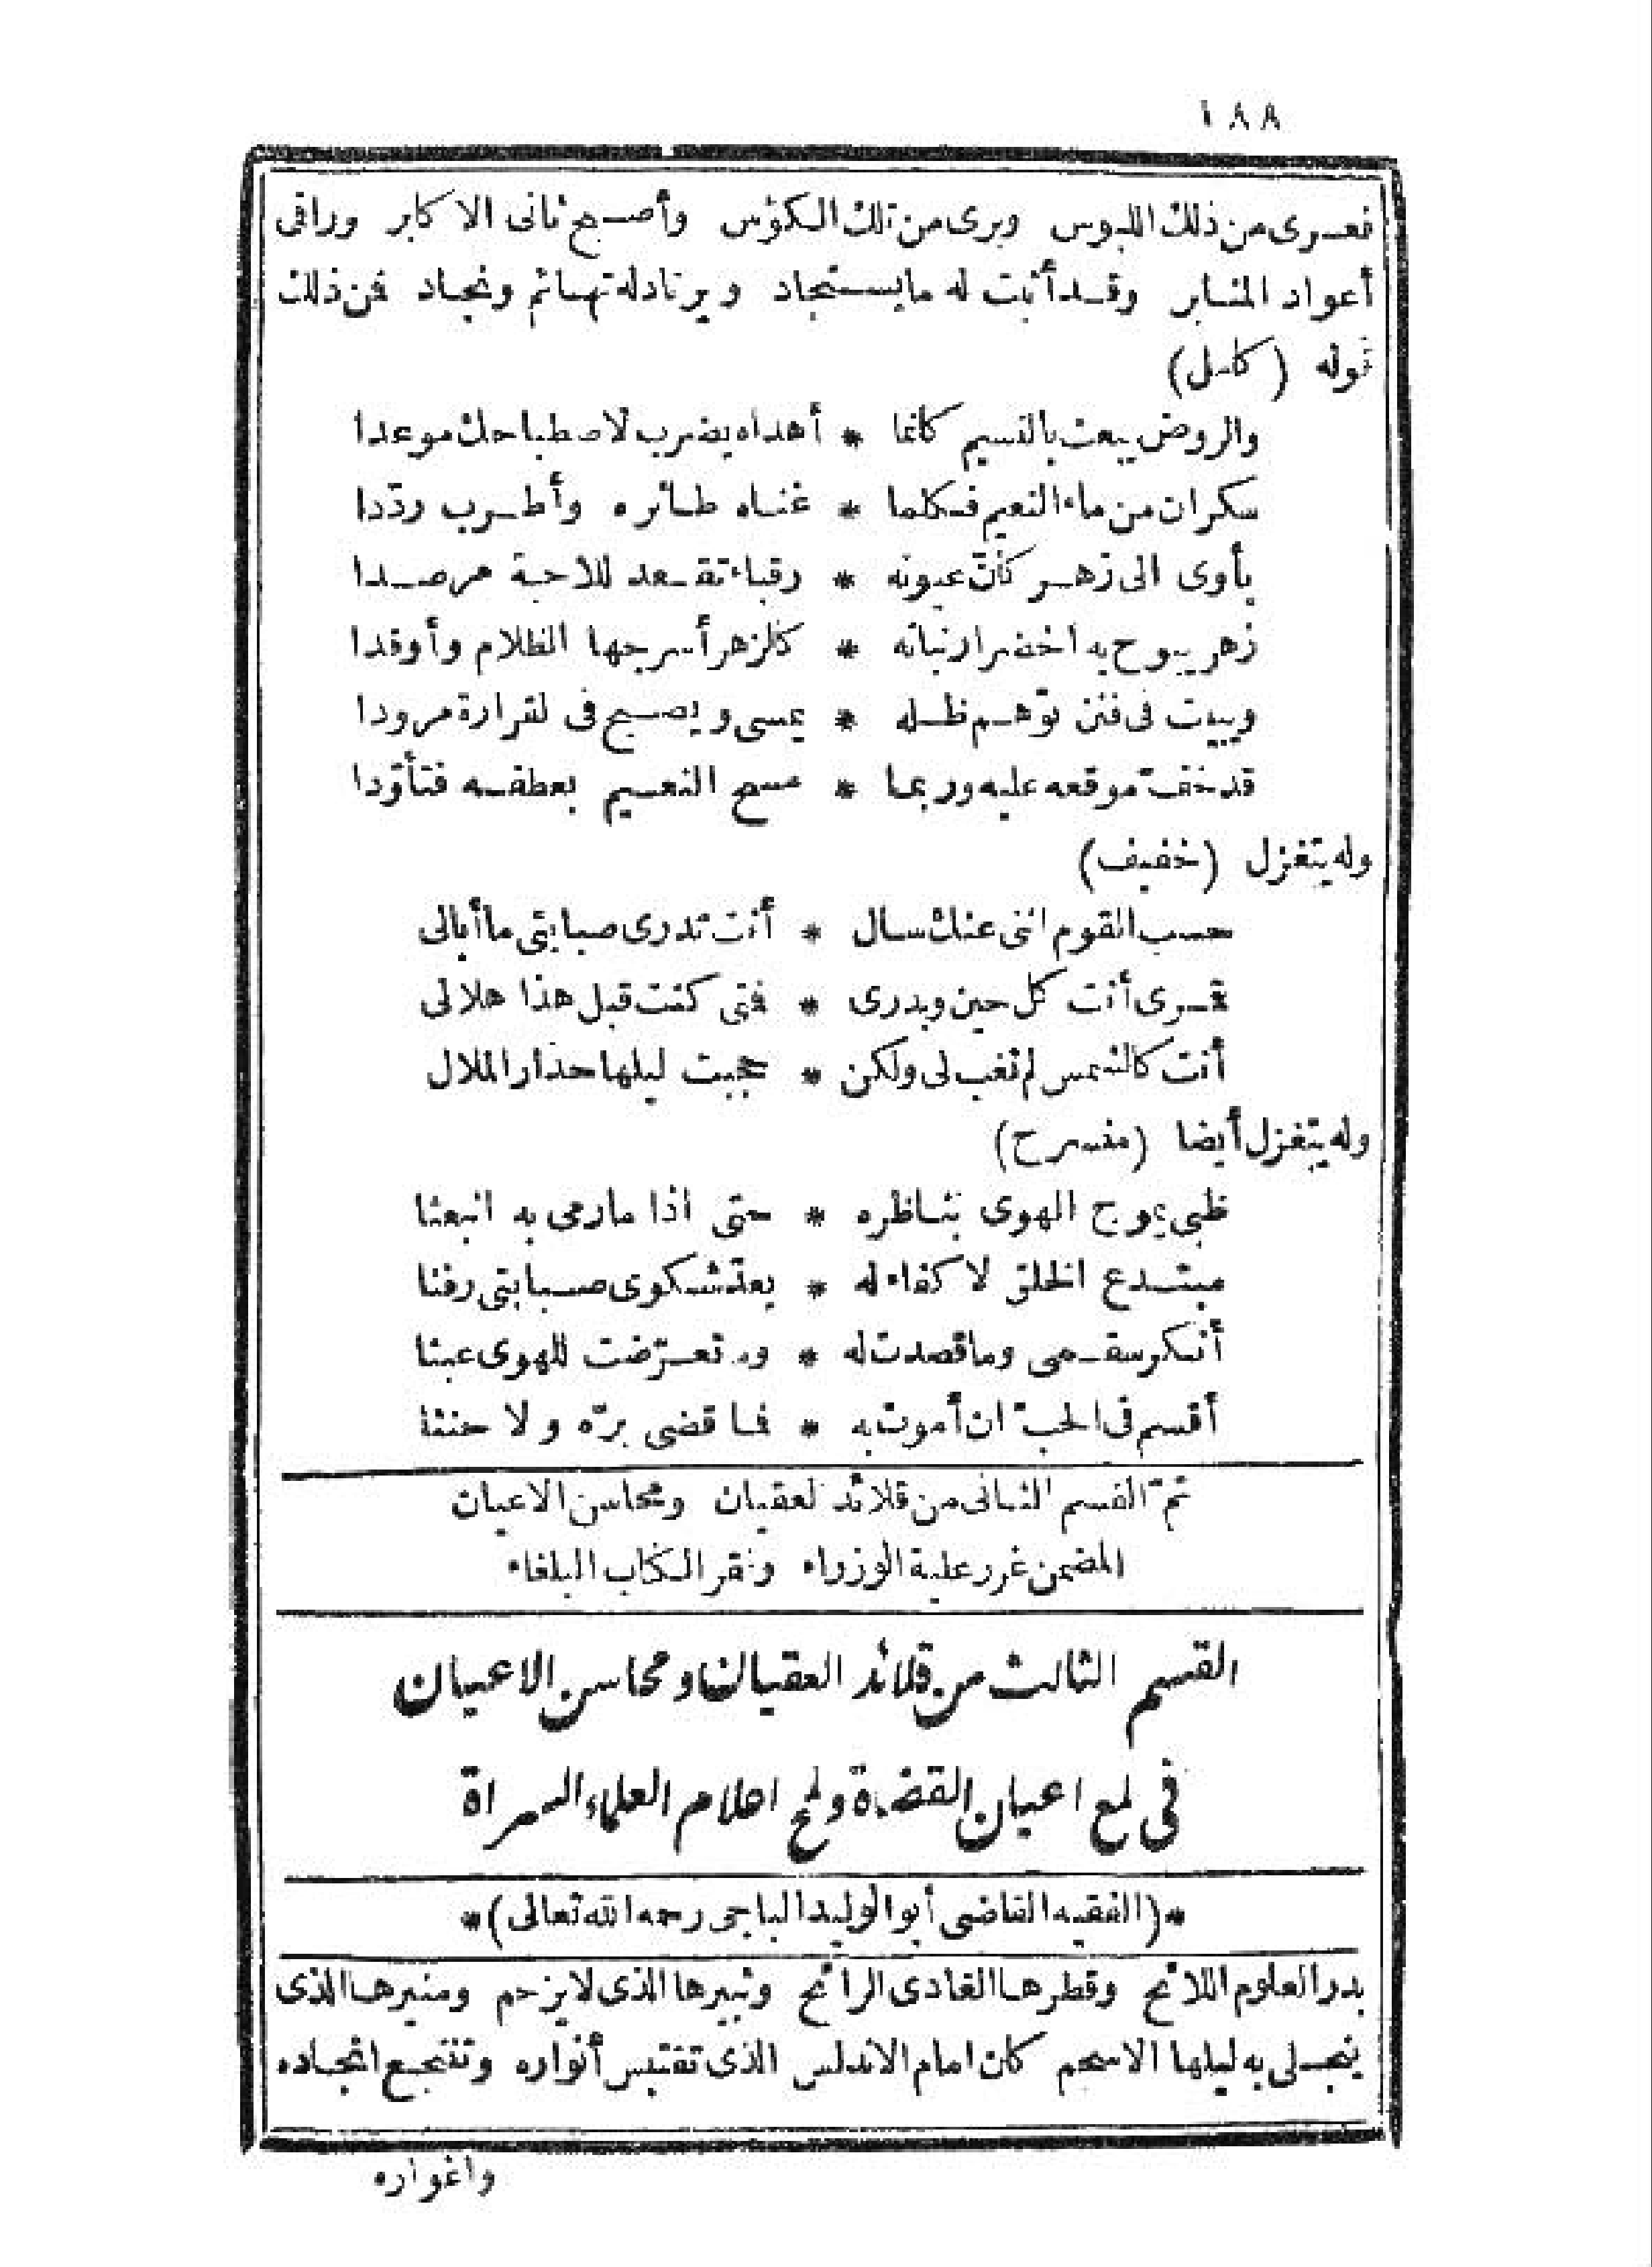 ١٨٨
فعرى من ذلك اللبوس وبرى من تلك الكؤس وأصبح ثانى الاكابر وراقى
أعواد المنابر وقد أثبت له ما يستجاد ويرتاد له تهائم ونجاد فمن ذلك
قوله (كامل)
والروض يبعث بالنسيم كأنما * أهداه يضرب لاصطباحك موعدا
سكران من ماء النعيم فكلما * غناه طائره وأطرب ردّدا
يأوى الى زهر كأنّ عيونه * رقباء تقعد للاحبة مرصدا
زهر يبوح به اخضرار نباته * كالزهر أسرجها الظلام وأوقدا
ويبيت فى فنن توّهم ظله * يمسى ويصبح فى لقرارة مرودا
قد خفّ موقعه عليه وربما * مسح النعيم بعطفه فتأوّدا
وله يتغزل (خفيف)
حسب القوم اننى عنك سال * أنت تدرى صبابتى ما أبالى
قمرى أنت كل حين وبدرى * فمتى كنت قبل هذا هلالى
أنت كالشمس لم تغب لى ولكن * حجبت ليلها حذار الملال
وله يتغزل أيضا (منسرح)
ظبى يموج الهوى بناظره * حتى اذا ما رمى به انبعثا
مبتدع الخلق لا كفاء له * يعدّ شكوى صبابتى رفثا
أنكر سقمى وما قصدت له * وما تعرّضت للهوى عبثا
أقسم فى الحبّ ان أموت به * فما قضى برّه ولا حنثا
تمّ القسم الثانى من قلائد لعقيان ومحاسن الاعيان
المضمن غرر علية الوزراء وفقر الكتاب البلغاء
القسم الثالث من قلائد العقيان ومحاسن الاعيان
فى لمع اعيان القضاة ولمح اعلام العلماء السراة
*(الفقيه القاضى أبو الوليد الباجى رحمه الله تعالى)*
بدر العلوم اللائح وقطرها الغادى الرائح وثبيرها الذى لا يزحم ومنيرها الذى
ينجلى به ليلها الاسحم كان امام الاندلس الذى تقتبس أنواره وتنتجع انجاده
واغواره